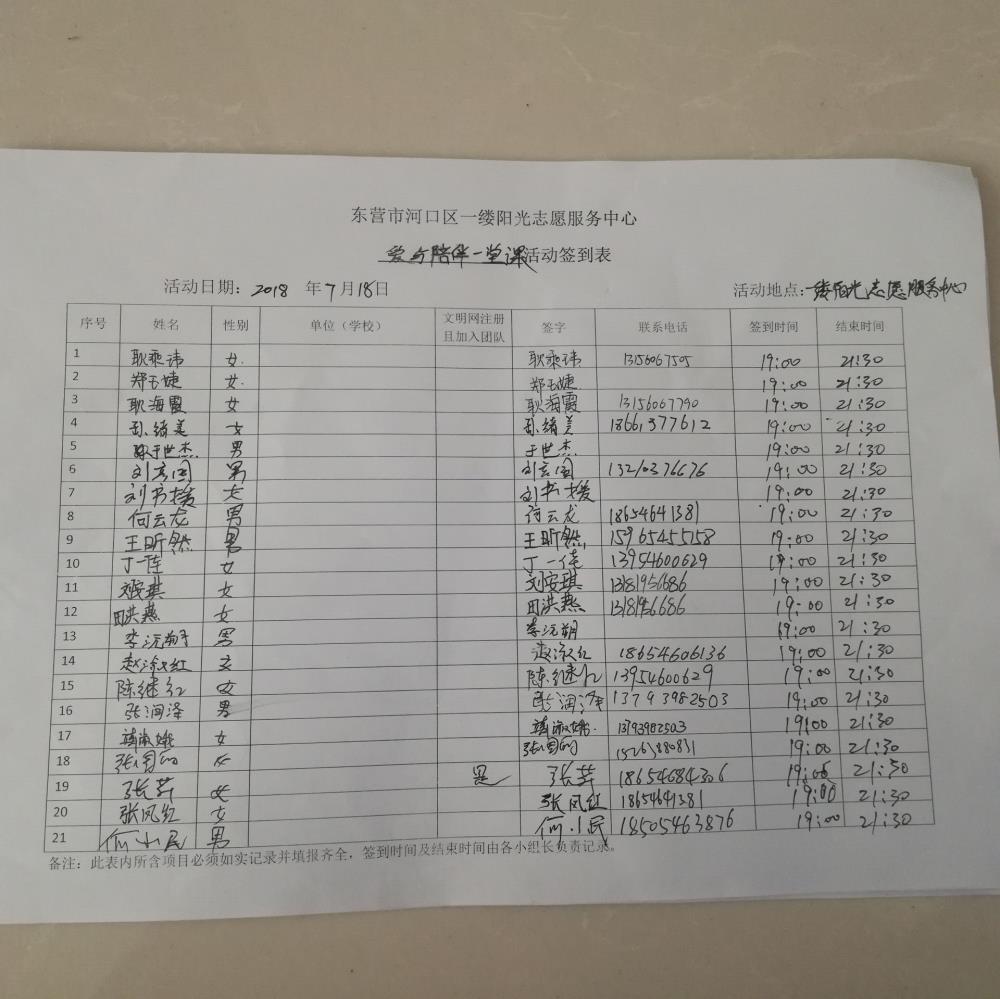 东营市河口区一缕阳光志愿服务中心
爱与陪伴一堂课活动签到表
活动日期: 2018 年 7 月 18 日 活动地点: 一缕阳光志愿服务中心
序号 姓名 性别 单位（学校） 文明网注册且加入团队 签字 联系电话 签到时间 结束时间
1 耿乘祎 女 耿乘祎 19:00 21:30
2 郑玉婕 女 郑玉婕 19:00 21:30
3 耿海霞 女 耿海霞 13156067790 19:00 21:30
4 孙绪美 女 孙绪美 19:00 21:30
5 于世杰 男 于世杰 19:00 21:30
6 刘玄国 男 刘玄国 19:00 21:30
7 刘书媛 女 刘书媛 19:00 21:30
8 何云龙 男 何云龙 18654641381 19:00 21:30
9 王昕然 男 王昕然 15965455158 19:00 21:30
10 丁一 女 丁一 13954600629 19:00 21:30
11 刘安琪 女 刘安琪 19:00 21:30
12 田洪燕 女 田洪燕 19:00 21:30
13 李沅朔 男 李沅朔 19:00 21:30
14 赵淑红 女 赵淑红 18654606136 19:00 21:30
15 陈继红 女 陈继红 13954600629 19:00 21:30
16 张润泽 男 张润泽 13793982503 19:00 21:30
17 靖淑娥 女 靖淑娥 13793982503 19:00 21:30
18 女 19:00 21:30
19 张芹 女 是 张芹 18654684306 19:00 21:30
20 张凤红 女 张凤红 18654641381 19:00 21:30
21 何小民 男 何小民 18505463876 19:00 21:30
备注：此表内所含项目必须如实记录并填报齐全，签到时间及结束时间由各小组长负责记录。